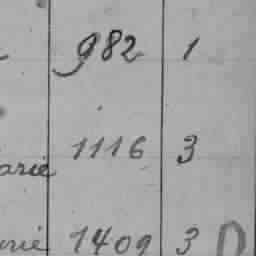 982 1
1116 3
arie
1409 3